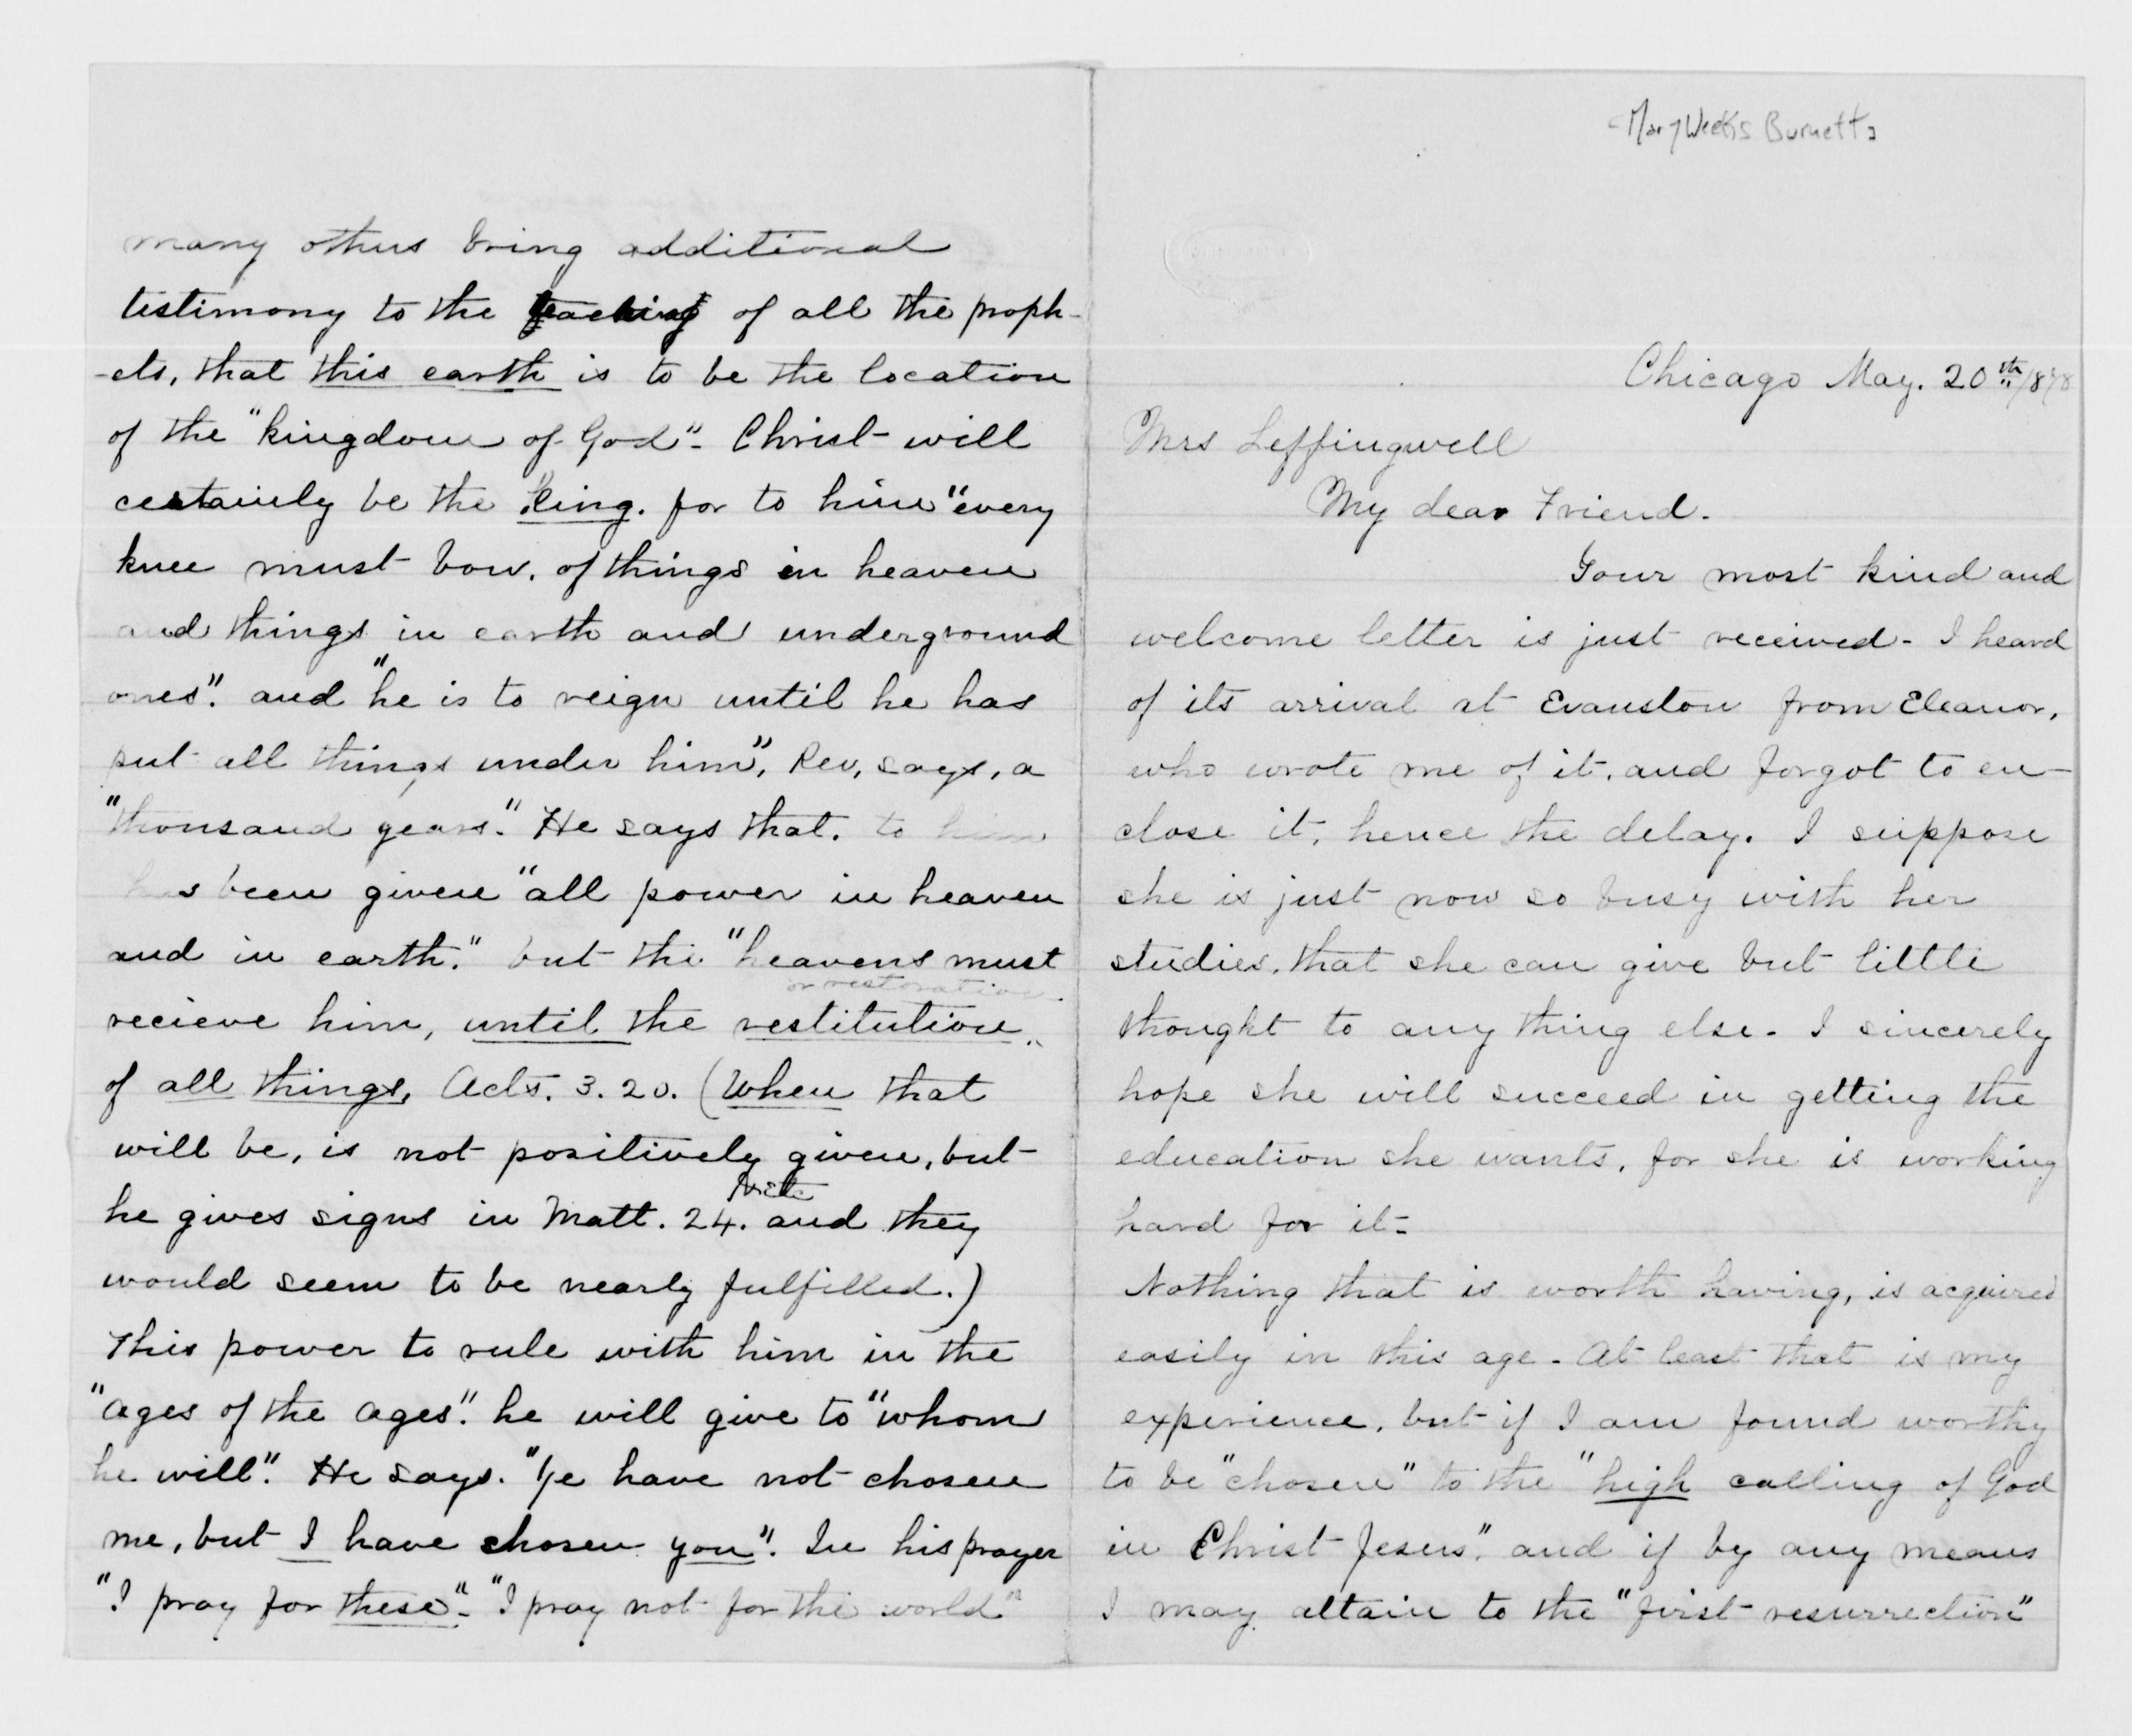 many others bring additional
testimony to the teaching of all the proph-
-ets, that this earth is to be the location
of the "kingdom of God"- Christ will
certainly be the "King. for to him "every
knee must bow. of things in heaven
and things in earth and underground
ones". and "he is to reign until he has
put all things under him", Rev, says, a
"thousand years." He says that. to him
has been given "all power in heaven
and in earth." but the "heavens must
or restoration.
recieve him, until the restitution"
of all things, Acts. 3. 20. (When that
will be, is not positively given, but
he gives signs in Matt. 24. and they
would seem to be nearly fulfilled.)
This power to rule with him in the
"ages of the ages". he will give to "whom
he will". He says. "Ye have not chosen
me, but I have chosen you". In his prayer
"I pray for these"- "I pray not for the world"
[Mary Weeks Burnett]
Chicago May. 20th/878
Mrs Leffingwell
My dear Friend.
Your most kind and
welcome letter is just received- I heard
of its arrival at Evanston from Eleanor,
who wrote me of it, and forgot to en-
close it, hence the delay. I suppose
she is just now so busy with her
studies, that she can give but little
thought to any thing else- I sincerely
hope she will succeed in getting the
education she wants, for she is working
hard for it-
Nothing that is worth having, is acquired
easily in this age- At least that is my
experience, but if I am found worthy
to be "chosen" to the "high calling of God
in Christ Jesus", and if by any means
I may attain to the "first resurrection"